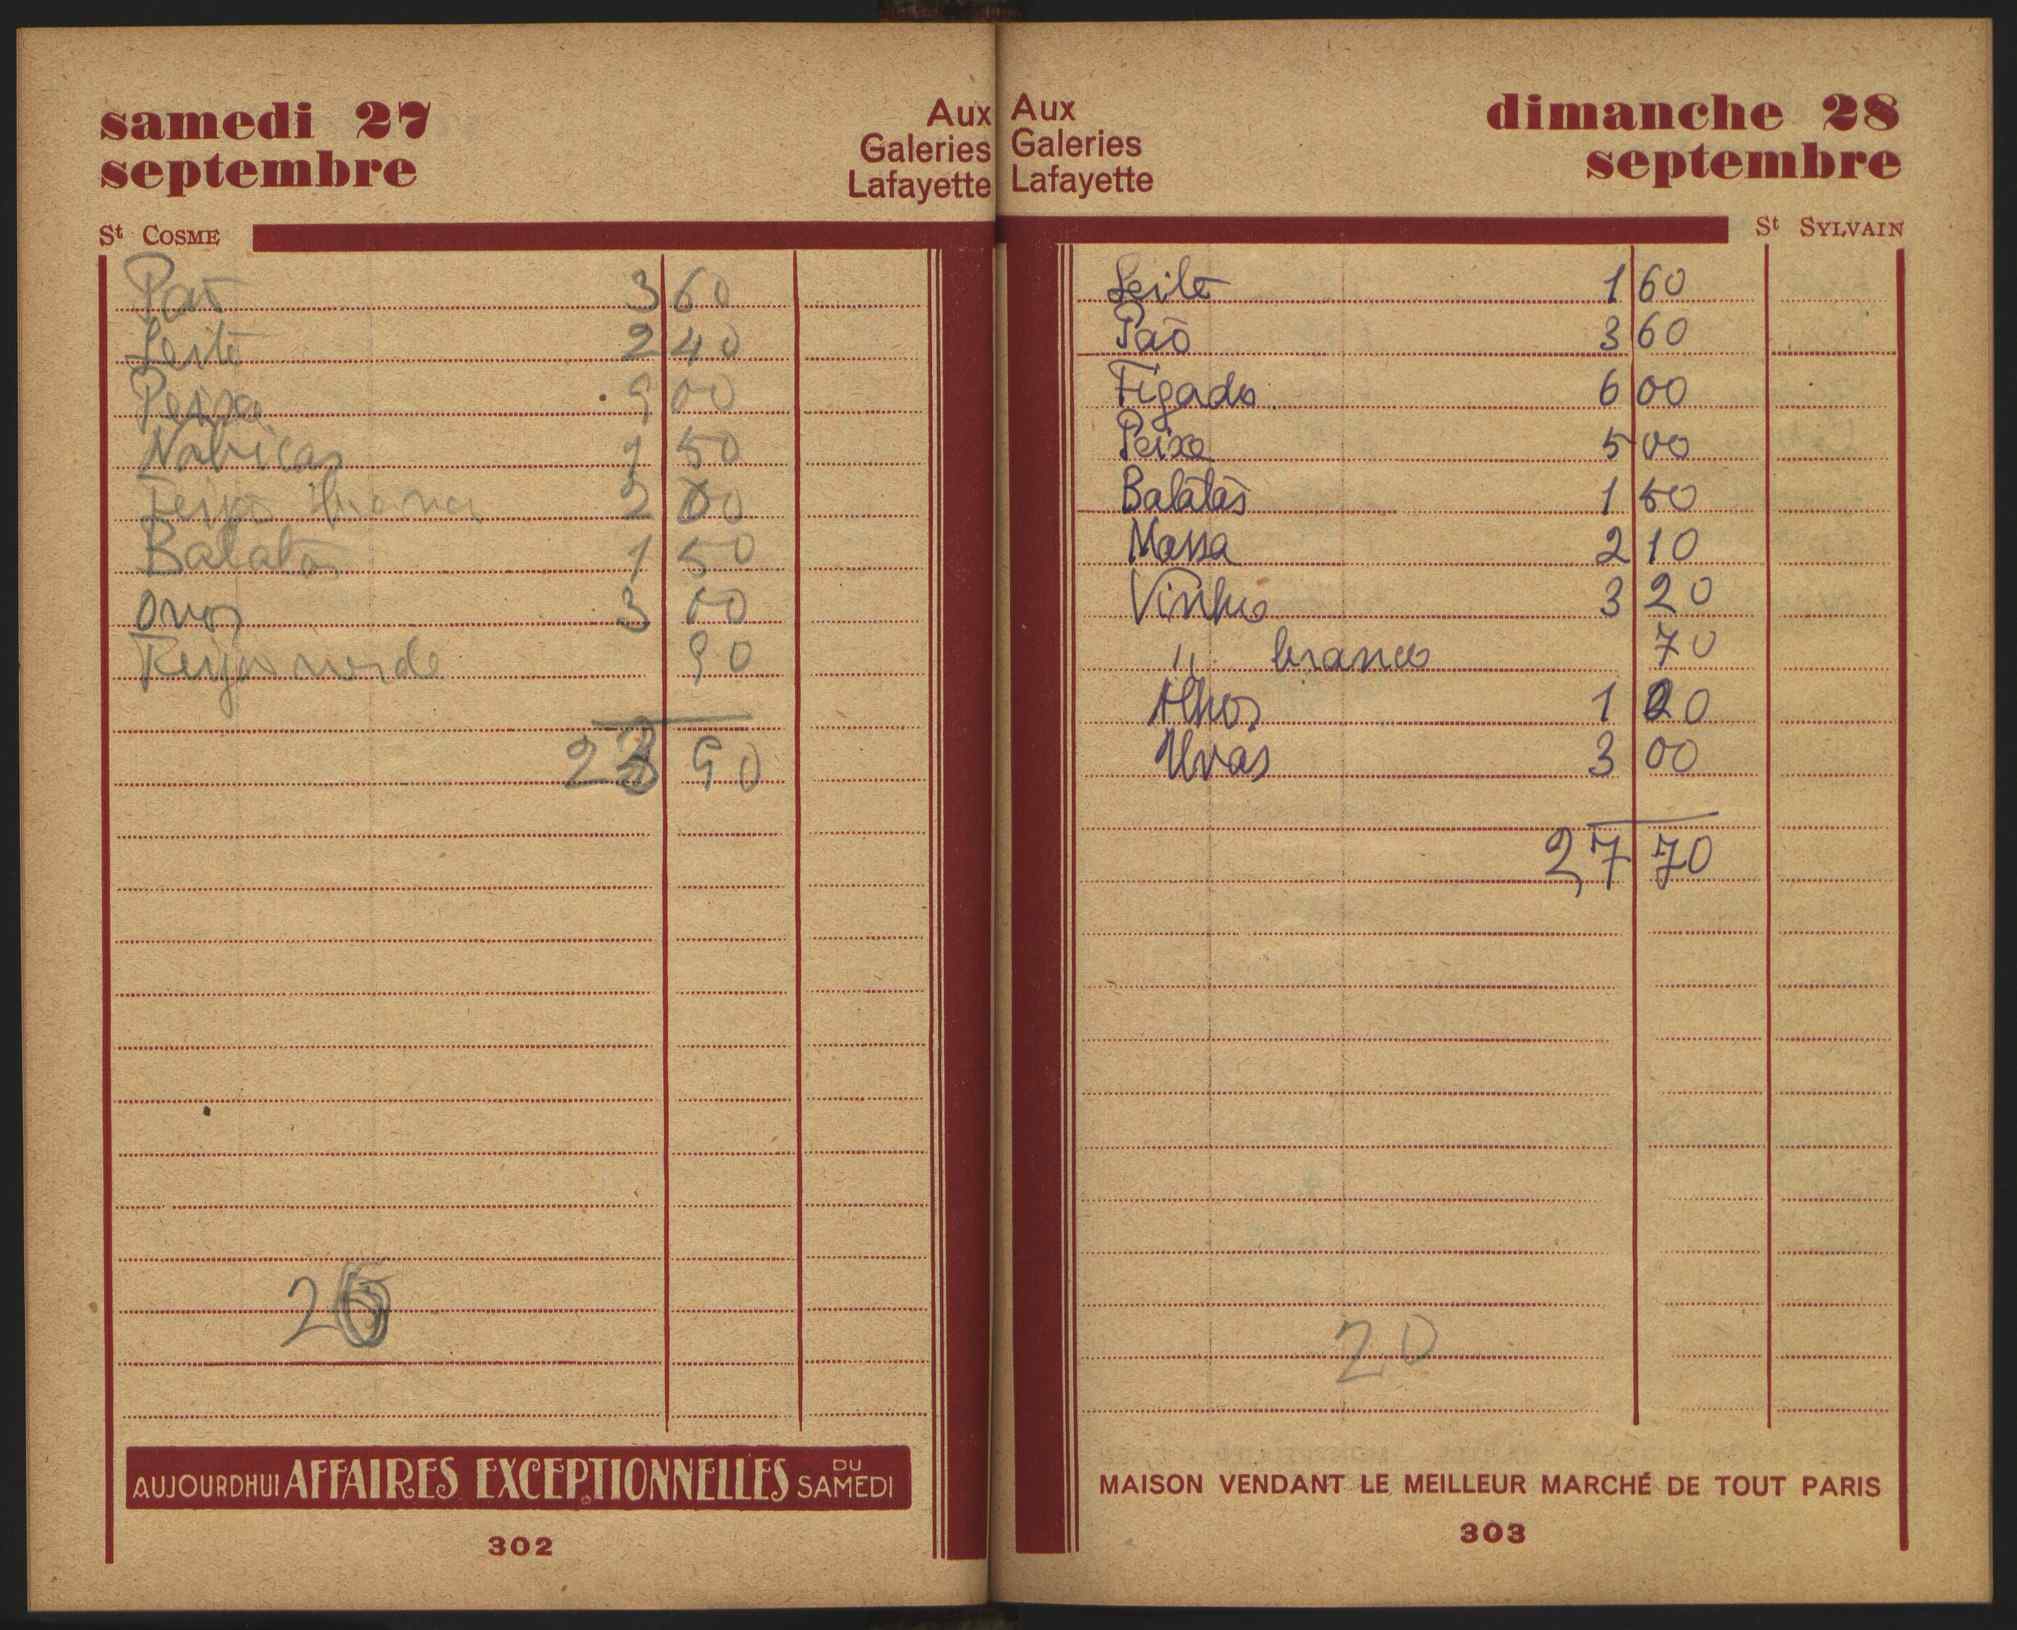 samedi 27
septembre
Aux
Galeries
Lafayette
St COSME
Pão 3 60
Leite 2 40
Peixe 9 00
Nabiças 1 50
Feijão branco 2 00
Batatas 1 50
Ovos 3 00
Feijão verde 90
23 90
26
AUJOURDHUI AFFAIRES EXCEPTIONNELLES DU SAMEDI
302
Aux
Galeries
Lafayette
dimanche 28
septembre
St SYLVAIN
Leite 1 60
Pão 3 60
Figado 6 00
Peixe 5 00
Batatas 1 50
Massa 2 10
Vinho 3 20
" branco 70
Alhos 1 00
Uvas 3 00
27 70
20
MAISON VENDANT LE MEILLEUR MARCHÉ DE TOUT PARIS
303